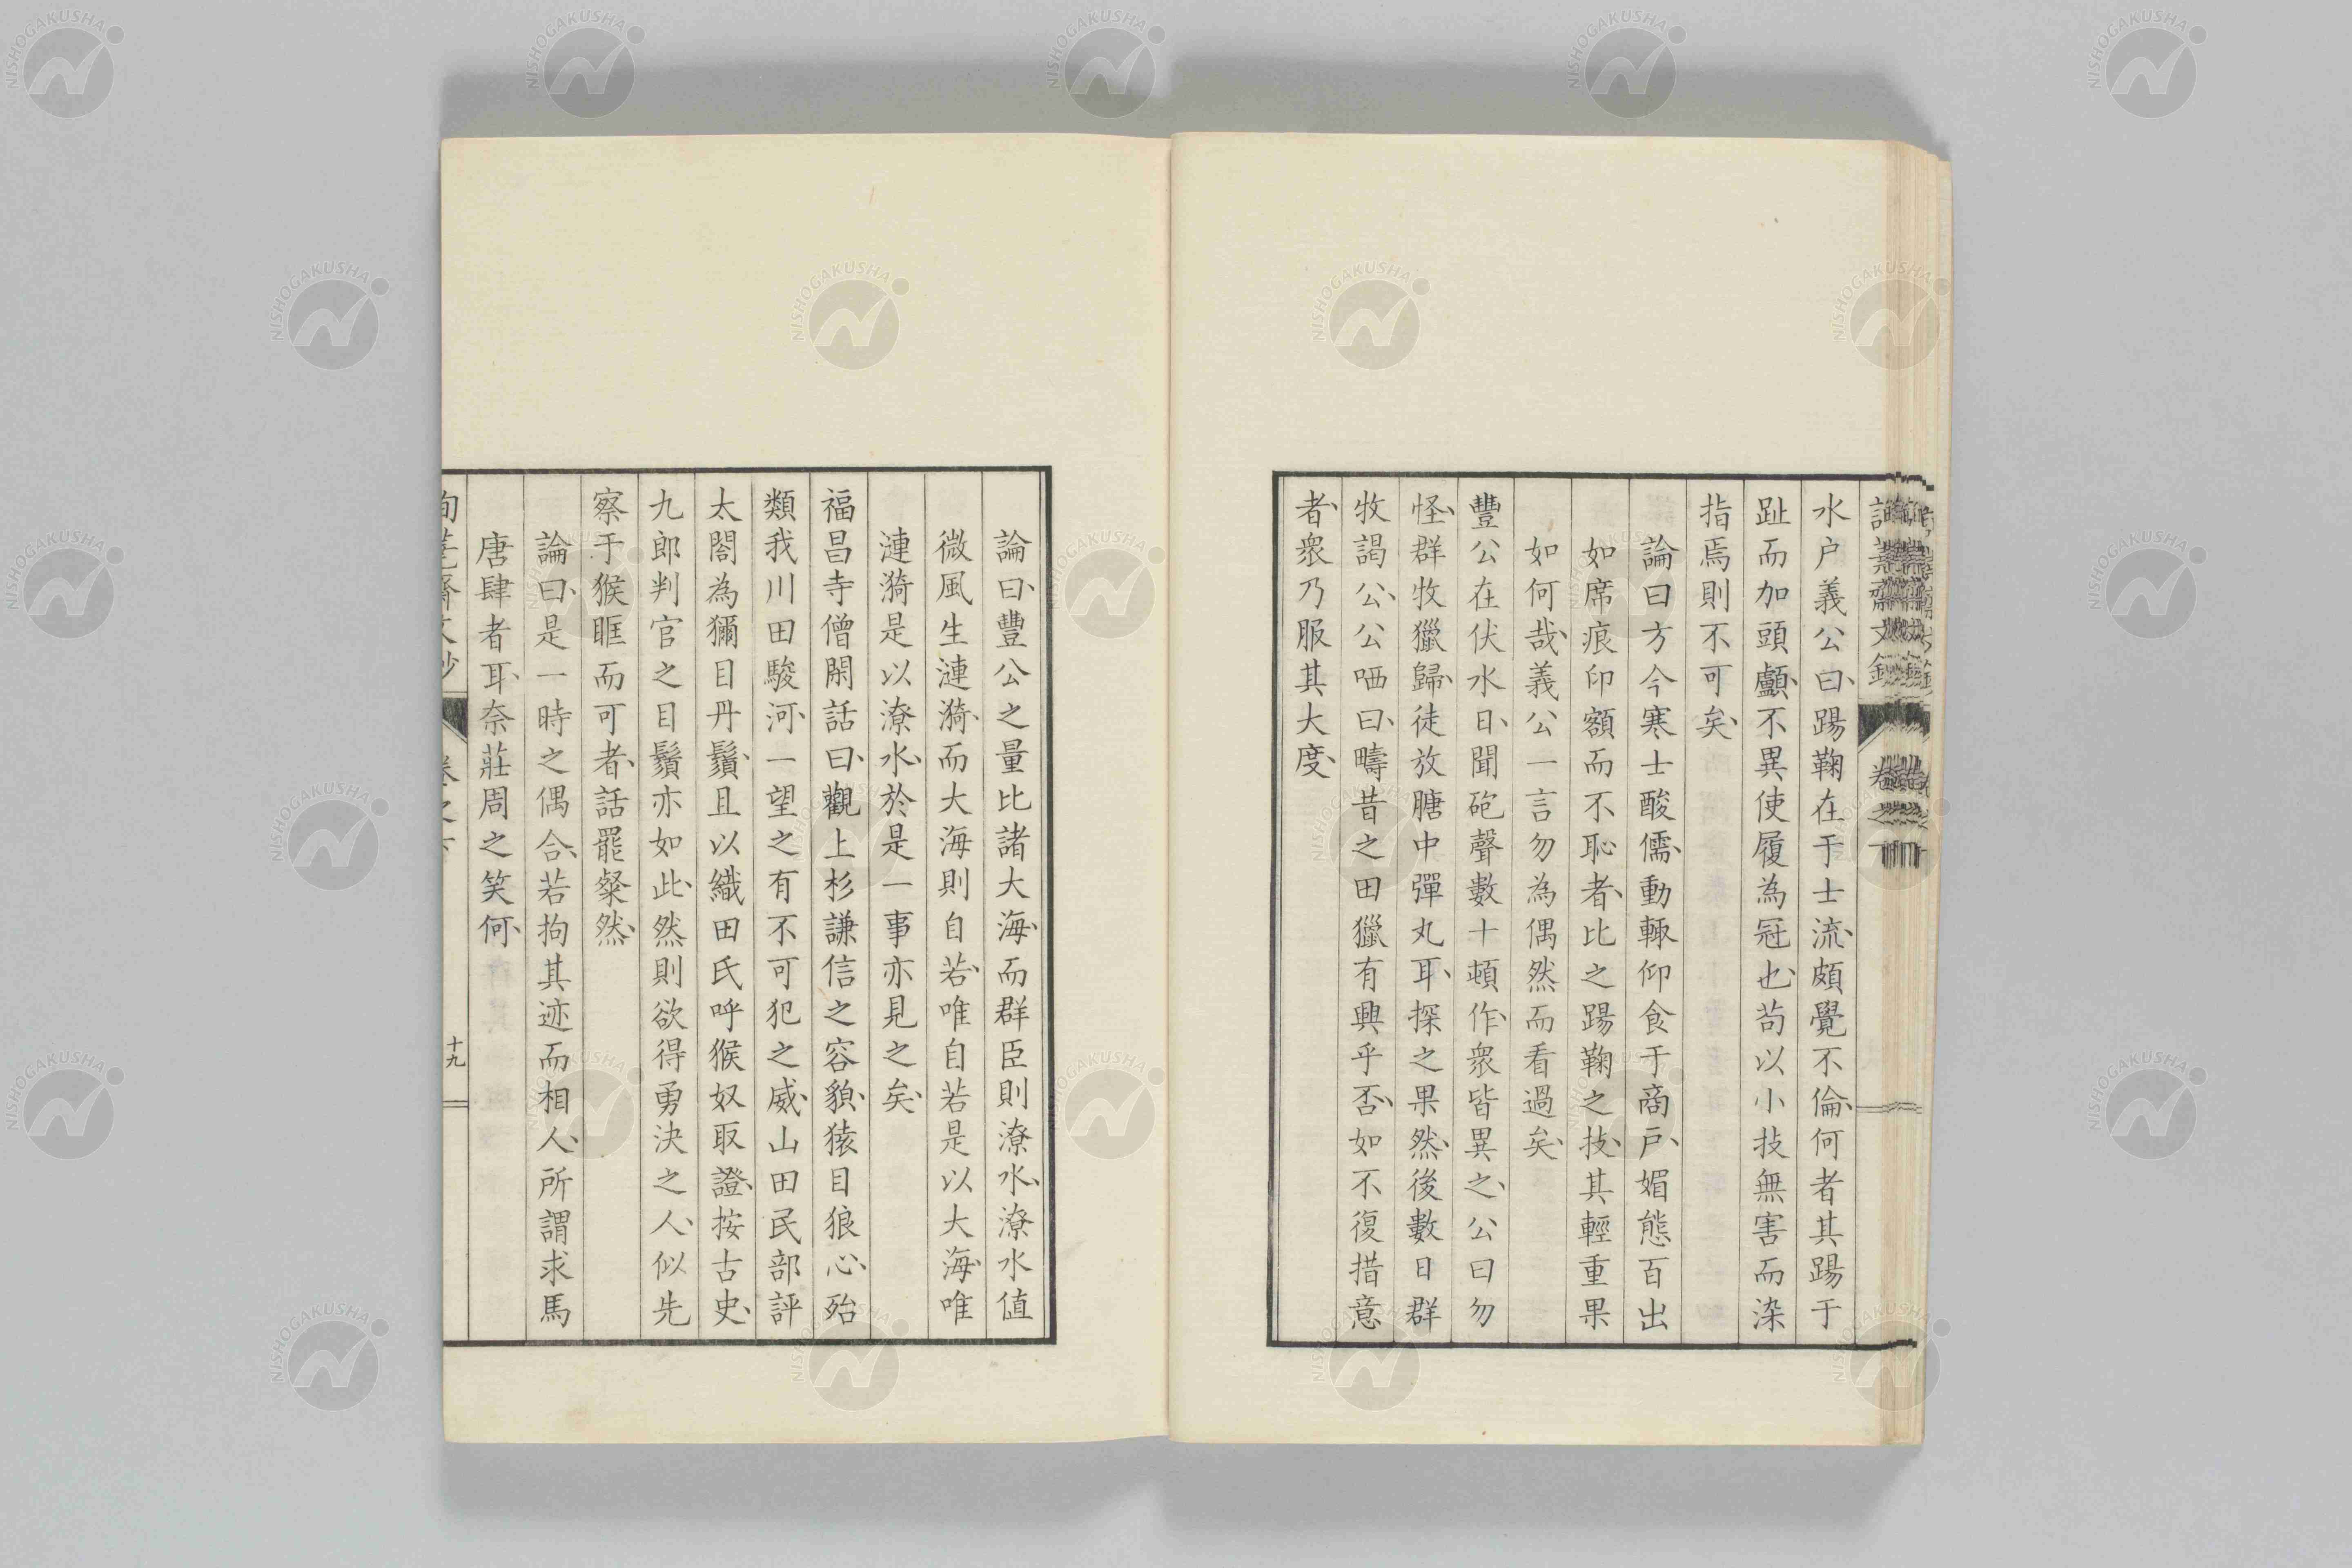 水戸義公曰、踢鞠在于士流、頗覺不倫、何者其踢于
趾而加頭顱、不異使履為冠也、苟以小技無害而染
指焉則不可矣、
論曰方今寒士酸儒、動輙仰食于商戸、媚態百出
如席痕印額而不恥者、比之踢鞠之技、其輕重果
如何哉、義公一言勿為偶然而看過矣、
豐公在伏水日、聞砲聲數十頓作、衆皆異之、公曰勿
怪、群牧獵歸、徒放膅中彈丸耳、探之果然、後數日群
牧謁公、公哂曰、疇昔之田獵有興乎否、如不復措意
者、衆乃服其大度、
論曰、豐公之量比諸大海、而群臣則潦水、潦水值
微風生漣漪、而大海則自若、唯自若是以大海、唯
漣漪是以潦水、於是一事亦見之矣、
福昌寺僧閑話曰、觀上杉謙信之容貌、猿目狼心、殆
類我川田駿河、一望之有不可犯之威、山田民部評
太閤為獼目丹鬚、且以織田氏呼猴奴取證、按古史、
九郎判官之目鬚亦如此、然則欲得勇決之人、似先
察于猴眶而可者、話罷粲然、
論曰、是一時之偶合、若拘其迹而相人、所謂求馬
唐肆者耳、奈莊周之笑何、
十九